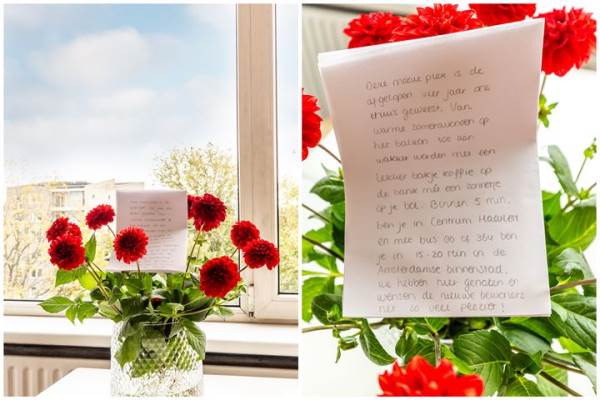 Deze mooie plek is de
afgelopen vier jaar ons
thuis geweest. Van
warme zomeravonden op
het balkon tot aan
wakker worden met een
lekker bakje koffie op
de bank met een zonnetje
op je bol. Binnen 5 min.
ben je in Centrum Haarlem
en met bus 80 of 346 ben
je in 15-20 min in de
Amsterdamse binnenstad.
We hebben hier genoten en
wensen de nieuwe bewoners
net zo veel plezier!